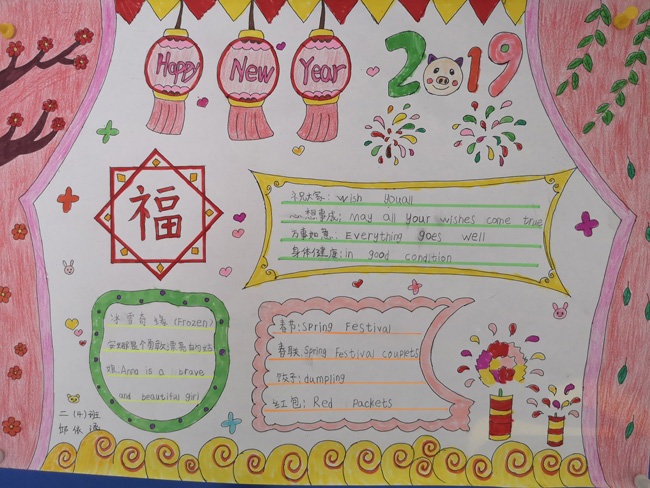 Happy New Year 2019
福
祝大家: wish youall
想事成: may all your wishes come true
万事如意: Everything goes well
身体健康: in good condition
冰雪奇缘 (Frozen)
安娜是个勇敢漂亮的姑
娘: Anna is a brave
and beautiful girl
春节: Spring Festival
春联: Spring Festival couplets
饺子: dumpling
红包: Red packets
二(4)班
邹依